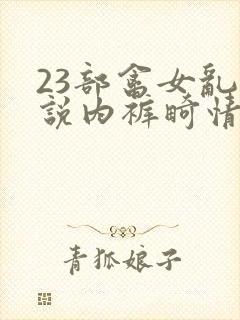 23部畜女乱
説内裤畸情
青狐娘子